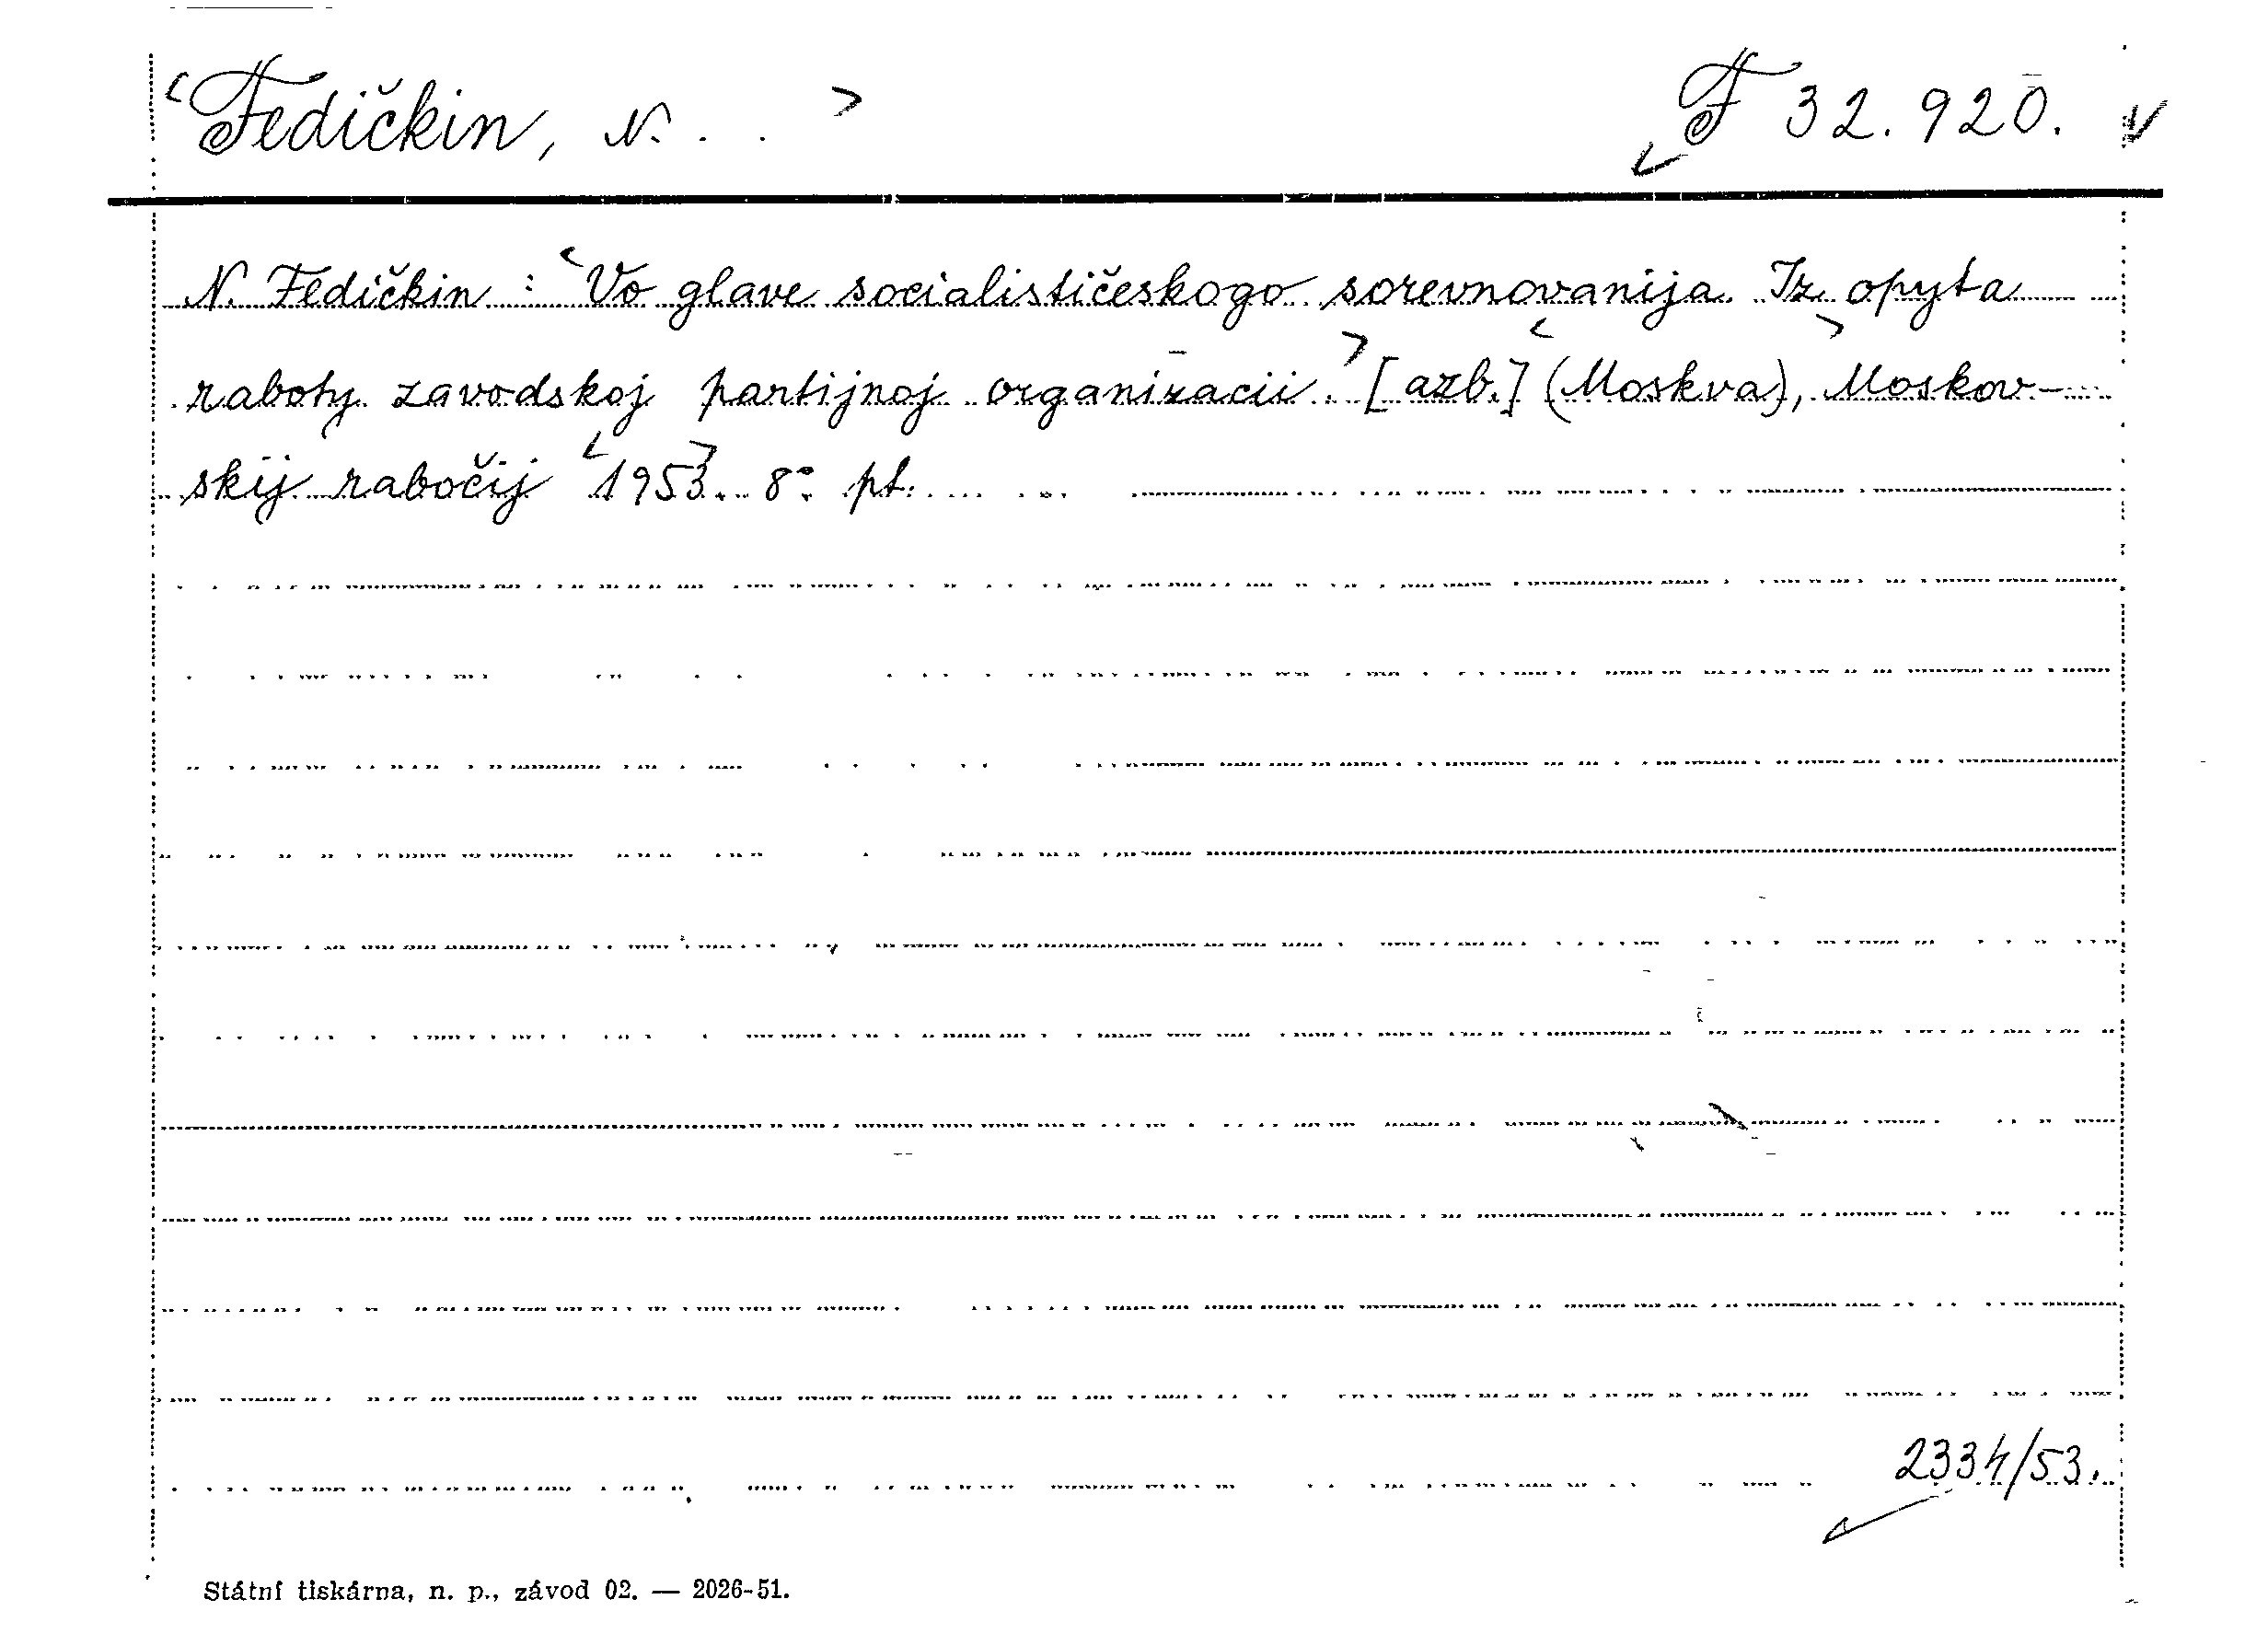 Fedičkin, N. . . F 32.920.
N. Fedičkin : Vo glave socialističeskogo sorevnovanija. Iz opyta
raboty zavodskoj partijnoj organizacii. [azb.] (Moskva), Moskov-
skij rabočij 1953. 8°. pt.
2334/53.
Státní tiskárna, n. p., závod 02. — 2026-51.